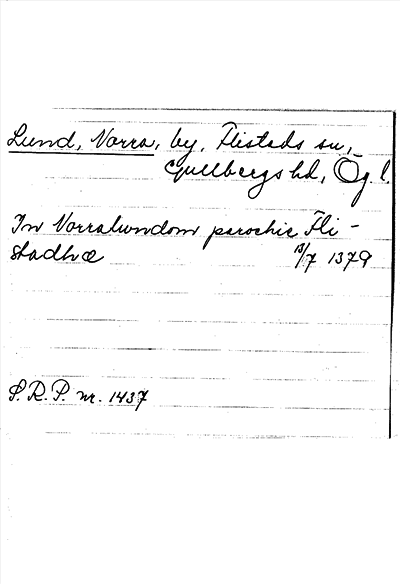 Lund, Norra, by, Flistads sn,
Gullbergs hd, Ög. l.
In Norralundom parochie Fli-
stadhæ 13/7 1379
S.R.P. nr. 1437